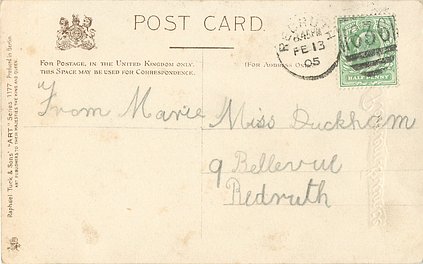 POST CARD.
FOR POSTAGE, IN THE UNITED KINGDOM ONLY,
THIS SPACE MAY BE USED FOR CORRESPONDENCE.
(FOR ADDRESS ON
FE 13
05
HALFPENNY
From Marie
Miss Duckham
9 Bellevue
Redruth
Raphael Tuck & Sons' "ART" Series 1177 Printed in Berlin
ART PUBLISHERS TO THEIR MAJESTIES THE KING AND QUEEN